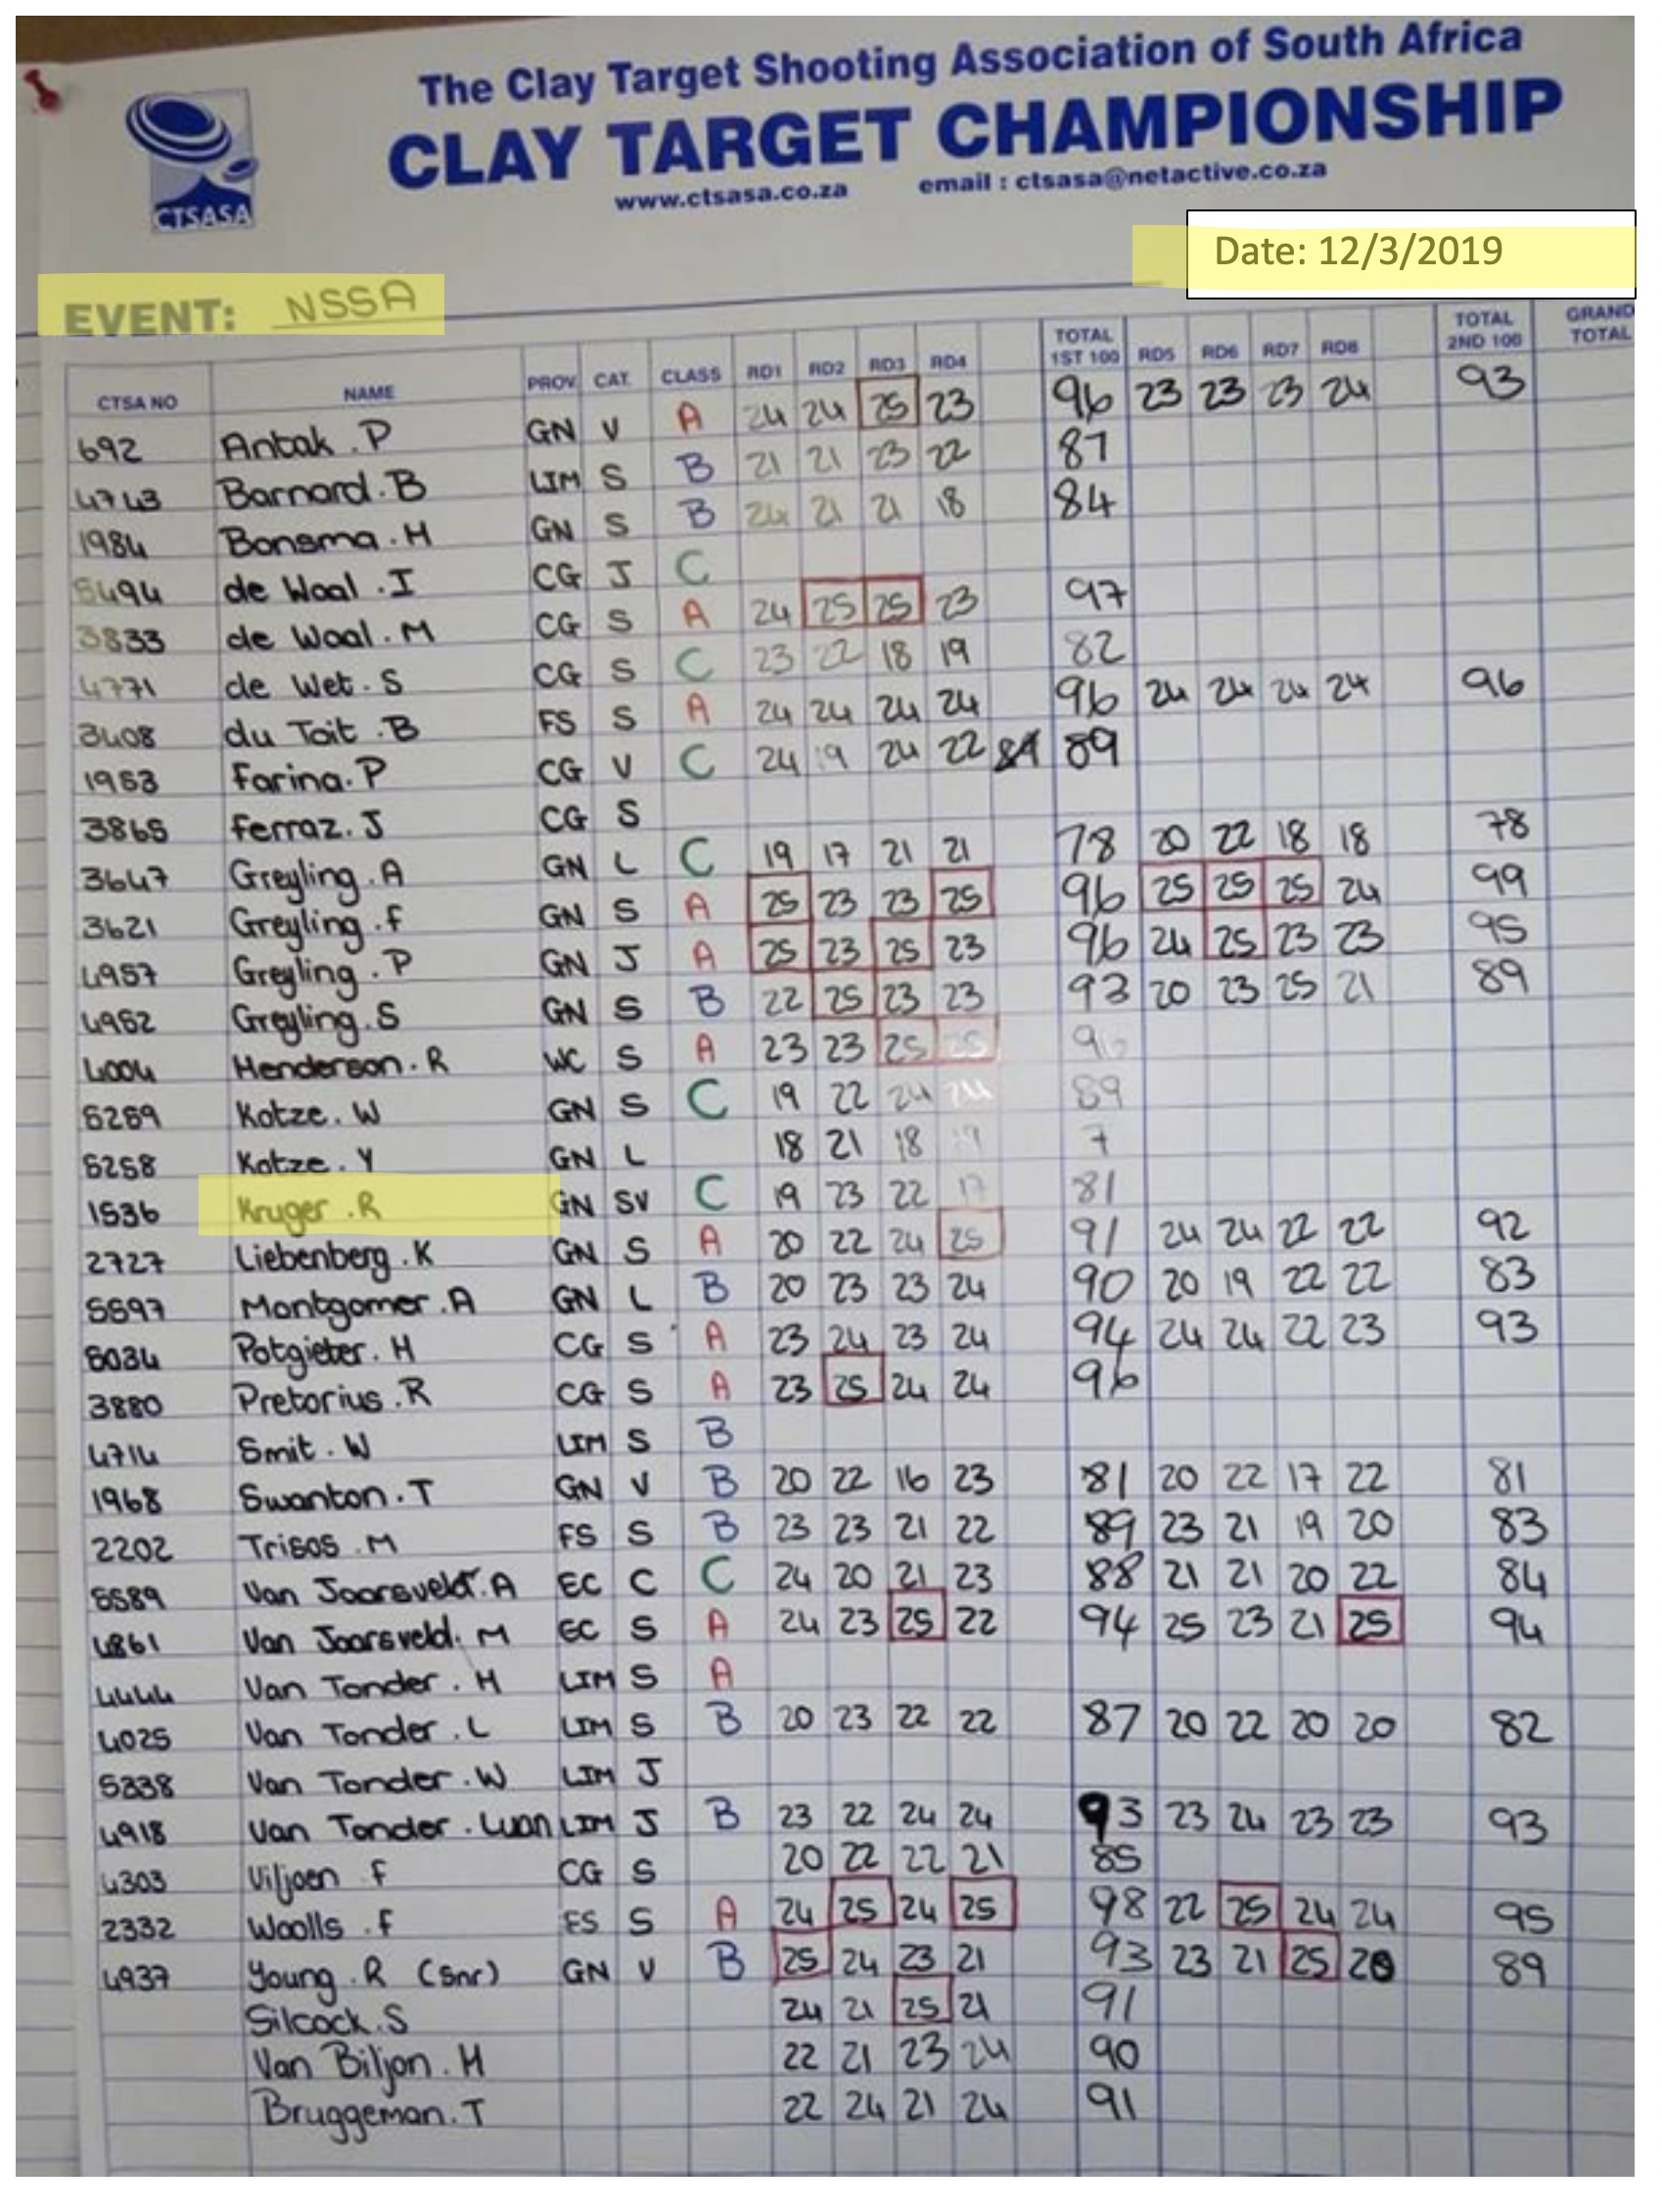 The Clay Target Shooting Association of South Africa
CLAY TARGET CHAMPIONSHIP
www.ctsasa.co.za email : ctsasa@netactive.co.za
CTSASA
Date: 12/3/2019
EVENT: NSSA
CTSA NO NAME PROV. CAT. CLASS RD1 RD2 RD3 RD4 TOTAL 1ST 100 RD5 RD6 RD7 RD8 TOTAL 2ND 100 GRAND TOTAL
692 Antak . P GN V A 24 24 25 23 96 23 23 23 24 93
4743 Barnard . B LIM S B 21 21 23 22 87
1984 Bonsma . H GN S B 24 21 21 18 84
5494 de Waal . I CG J C
3833 de Waal . M CG S A 24 25 25 23 97
4771 de Wet . S CG S C 23 22 18 19 82
3408 du Toit . B FS S A 24 24 24 24 96 24 24 24 24 96
1953 Farina . P CG V C 24 19 24 22 89
3865 Ferraz . J CG S
3647 Greyling . A GN L C 19 17 21 21 78 20 22 18 18 78
3621 Greyling . F GN S A 25 23 23 25 96 25 25 25 24 99
4957 Greyling . P GN J A 25 23 25 23 96 24 25 23 23 95
4952 Greyling . S GN S B 22 25 23 23 93 20 23 25 21 89
4004 Henderson . R WC S A 23 23 25 25 96
5259 Kotze . W GN S C 19 22 24 24 89
5258 Kotze . Y GN L 18 21 18 19 7
1536 Kruger . R GN SV C 19 23 22 17 81
2727 Liebenberg . K GN S A 20 22 24 25 91 24 24 22 22 92
5597 Montgomer . A GN L B 20 23 23 24 90 20 19 22 22 83
5034 Potgieter . H CG S A 23 24 23 24 94 24 24 22 23 93
3880 Pretorius . R CG S A 23 25 24 24 96
4714 Smit . W LIM S B
1968 Swanton . T GN V B 20 22 16 23 81 20 22 17 22 81
2202 Trisos . M FS S B 23 23 21 22 89 23 21 19 20 83
5589 Van Jaarsveldt . A EC C C 24 20 21 23 88 21 21 20 22 84
4861 Van Jaarsveld . M EC S A 24 23 25 22 94 25 23 21 25 94
4444 Van Tonder . H LIM S A
4025 Van Tonder . L LIM S B 20 23 22 22 87 20 22 20 20 82
5338 Van Tonder . W LIM J
4918 Van Tonder . Luan LIM J B 23 22 24 24 93 23 24 23 23 93
4303 Viljoen F CG S 20 22 22 21 85
2332 Woolls . F FS S A 24 25 24 25 98 22 25 24 24 95
4937 Young . R (Snr) GN V B 25 24 23 21 93 23 21 25 20 89
Silcock . S 24 21 25 21 91
Van Biljon . H 22 21 23 24 90
Bruggeman . T 22 24 21 24 91